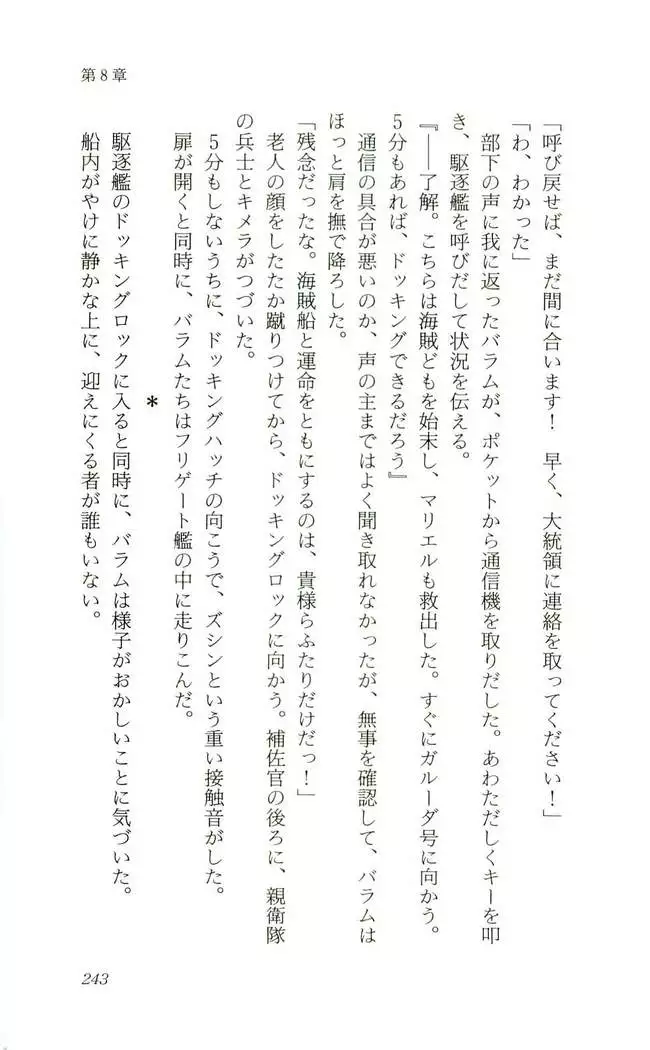 第8章
「呼び戻せば、まだ間に合います！　早く、大統領に連絡を取ってください！」
「わ、わかった」
　部下の声に我に返ったバラムが、ポケットから通信機を取りだした。あわただしくキーを叩
き、駆逐艦を呼びだして状況を伝える。
『――了解。こちらは海賊どもを始末し、マリエルも救出した。すぐにガルーダ号に向かう。
5分もあれば、ドッキングできるだろう』
　通信の具合が悪いのか、声の主まではよく聞き取れなかったが、無事を確認して、バラムは
ほっと肩を撫で降ろした。
「残念だったな。海賊船と運命をともにするのは、貴様らふたりだけだっ！」
　老人の顔をしたたか蹴りつけてから、ドッキングロックに向かう。補佐官の後ろに、親衛隊
の兵士とキメラがつづいた。
　5分もしないうちに、ドッキングハッチの向こうで、ズシンという重い接触音がした。
　扉が開くと同時に、バラムたちはフリゲート艦の中に走りこんだ。
＊
　駆逐艦のドッキングロックに入ると同時に、バラムは様子がおかしいことに気づいた。
　船内がやけに静かな上に、迎えにくる者が誰もいない。
243